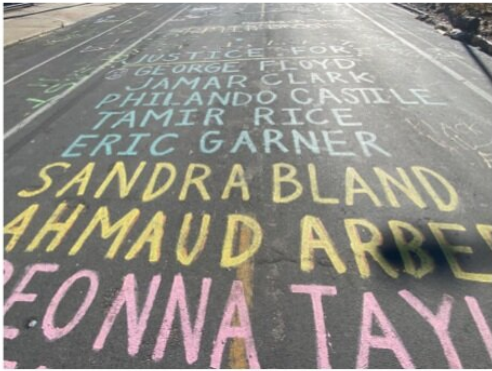 JUSTICE FOR
GEORGE FLOYD
JAMAR CLARK
PHILANDO CASTILE
TAMIR RICE
ERIC GARNER
SANDRA BLAND
AHMAUD ARBE
EONNA TAYL